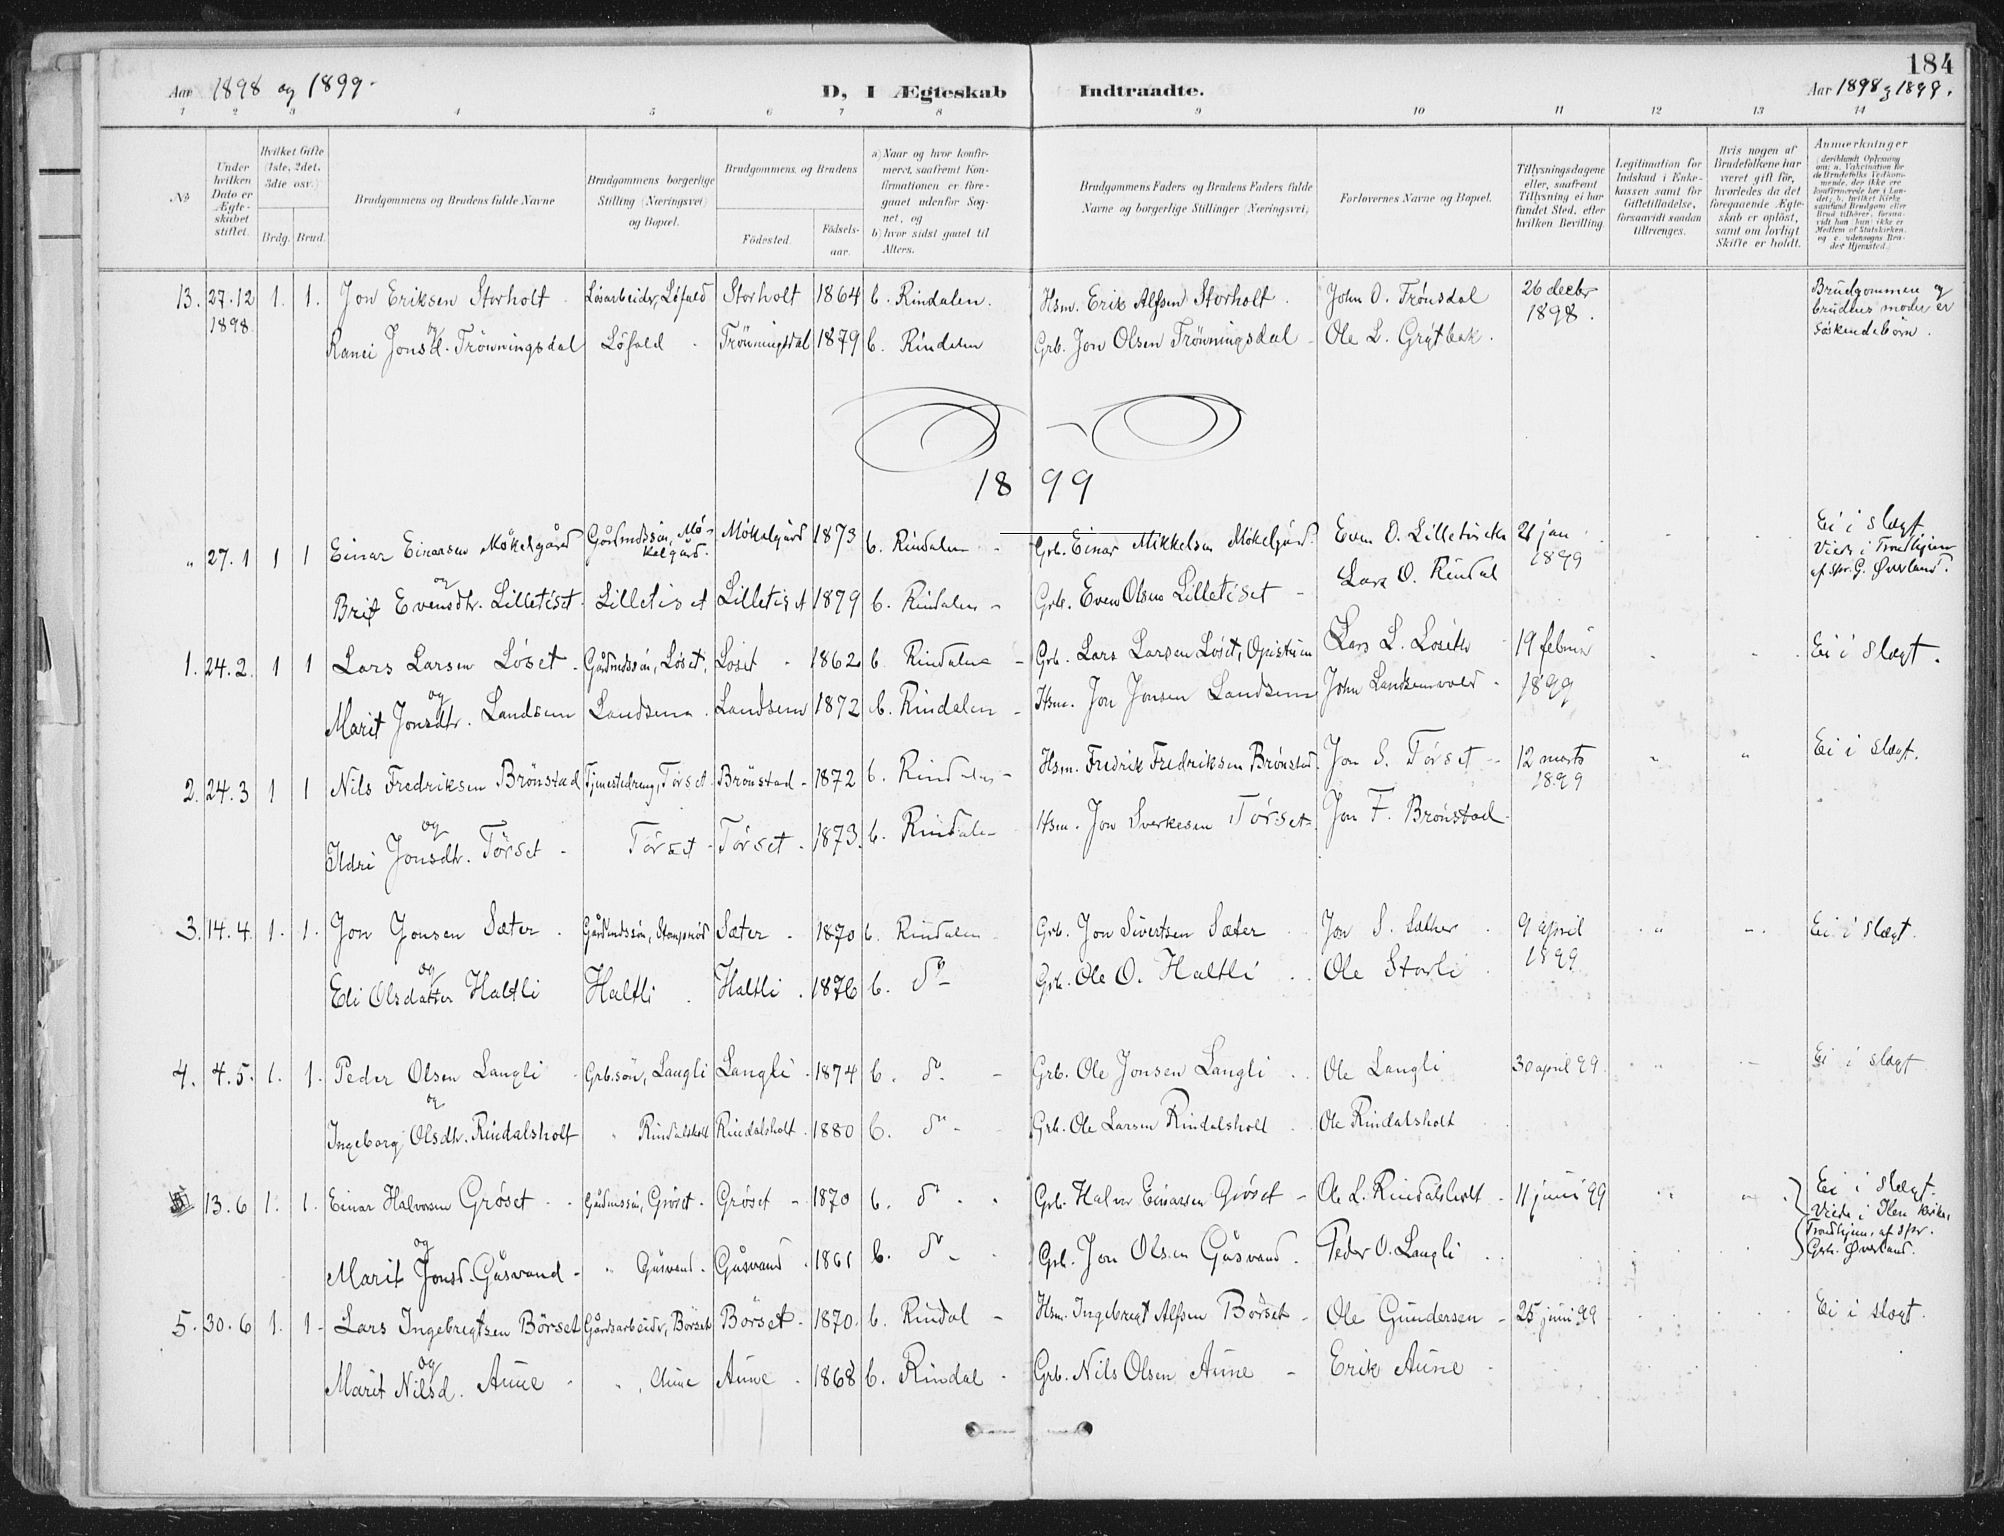 184
Aar 1898 og 1899. D, I Ægteskab Indtraadte. Aar 1898 og 1899.
1 2 3 4 5 6 7 8 9 10 11 12 13 14
No
Under hvilken Dato er Ægteskabet stiftet.
Hvilket Gifte (1ste, 2det, 3die osv.)
Brdg. Brud.
Brudgommens og Brudens fulde Navne
Brudgommens borgerlige Stilling (Næringsvei) og Bopæl.
Brudgommens og Brudens
Fødested. Fødselsaar.
a) Naar og hvor konfirmeret, saafremt Konfirmationen er foregaaet udenfor Sognet, og
b) hvor sidst gaaet til Alters.
Brudgommens Faders og Brudens Faders fulde Navne og borgerlige Stillinger (Næringsvei)
Forlovernes Navne og Bopæl.
Tillysningsdagene eller, saafremt Tillysning ei har fundet Sted, efter hvilken Bevilling.
Legitimation for Indskud i Enkekassen samt for Giftetilladelse, forsaavidt saadan tiltrænges.
Hvis nogen af Brudefolkene har været gift før, hvorledes da det foregaaende Ægteskab er opløst, samt om lovligt Skifte er holdt.
Anmærkninger
13. 27.12 1898 1. 1. Jon Eriksen Storholt Løsarbeider, Løfald Storholt 1864 b. Rindalen. Hsm. Erik Alfsen Storholt John O. Trønsdal 26 decbr 1898. Brudgommen og brudens moder er søskendebørn.
og
Ranei Jonsd. Trönningsdal Löfald Trönningsdal 1879 b. Rindalen Grb. Jon Olsen Trönningsdal Ole L. Grytbak.
1899
" 27.1 1 1 Einar Einarsen Møkelgård Gårdmdssön, Mökelgård. Møkelgård 1873 b. Rindalen Grb. Einar Mikkelsen Møkelgård. Even O. Lilletisetn 21 jan 1899 Ei i slægt. Viede i Trondhjem af spr. G. Øverland.
og
Brit Evensdtr. Lilletiset Lilletiset Lilletiset 1879 b. Rindalen Grb. Even Olsen Lilletiset Lars O. Rindal
1. 24.2. 1 1 Lars Larsen Løset Gårdmdssön, Løset, Løset 1862 b. Rindalen Grb. Lars Larsen Løset, Opistuen Lars L. Løseth 19 februar 1899 Ei i slægt.
og
Marit Jonsdtr. Landsem Landsem Landsem 1872 b. Rindalen Hsm. Jon Jonsen Landsem John Landsemvold
2. 24.3 1 1 Nils Fredriksen Brönstad Tjenestedreng, Törset Brönstad 1872 b. Rindalen Hsm. Fredrik Fredriksen Brønstad Jon S. Törset 12 marts 1899 Ei i slægt.
og
Ildri Jonsdtr. Törset Törset Törset 1873. b. Rindalen Hsm. Jon Sverkesen Törset Jon F. Brönstad
3. 14.4. 1. 1. Jon Jonsen Sæter Gårdmdssön, Sæter 1870 b. Rindalen Grb. Jon Sivertsen Sæter Jon S. Sæther 9 april 1899 Ei i slægt.
og
Edi Olsdatter Haltli Haltli Haltli 1876 b. do Grb. Ole O. Haltli Ole Storli
4. 4.5. 1. 1. Peder Olsen Langli Grb.sön, Langli Langli 1874 b. do Grb. Ole Jonsen Langli Ole Langli 30 april 99 Ei i slægt
og
Ingeborg Olsdtr. Rindalsholt " Rindalsholt Rindalsholt 1880 b. do Grb. Ole Larsen Rindalsholt Ole Rindalsholt
13.6 1. 1. Einar Halvorsen Grøset Gårdmssön, Grøset Grøset 1870 b. do Grb. Halvor Einarsen Grøset Ole L. Rindalsholt 11 juni 99 Ei i slægt. Viede i Ilen kirke, Trondhjem, af spr. Grb. Øverland.
og
Marit Jonsd. Gåsvand " Gåsvand. Gåsvand 1861 b. do Grb. Jon Olsen Gåsvand. Peder O. Langli
5. 30.6 1. 1 Lars Ingebregtsen Börset Gårdsarbeider, Börset Börset 1870. b. Rindal Hsm. Ingebregt Alfsen Börset Ole Gundersen 25 juni 99 Ei i slægt.
og
Marit Nilsd. Aune " Aune Aune 1868 b. Rindal Grb. Nils Olsen Aune Erik Aune